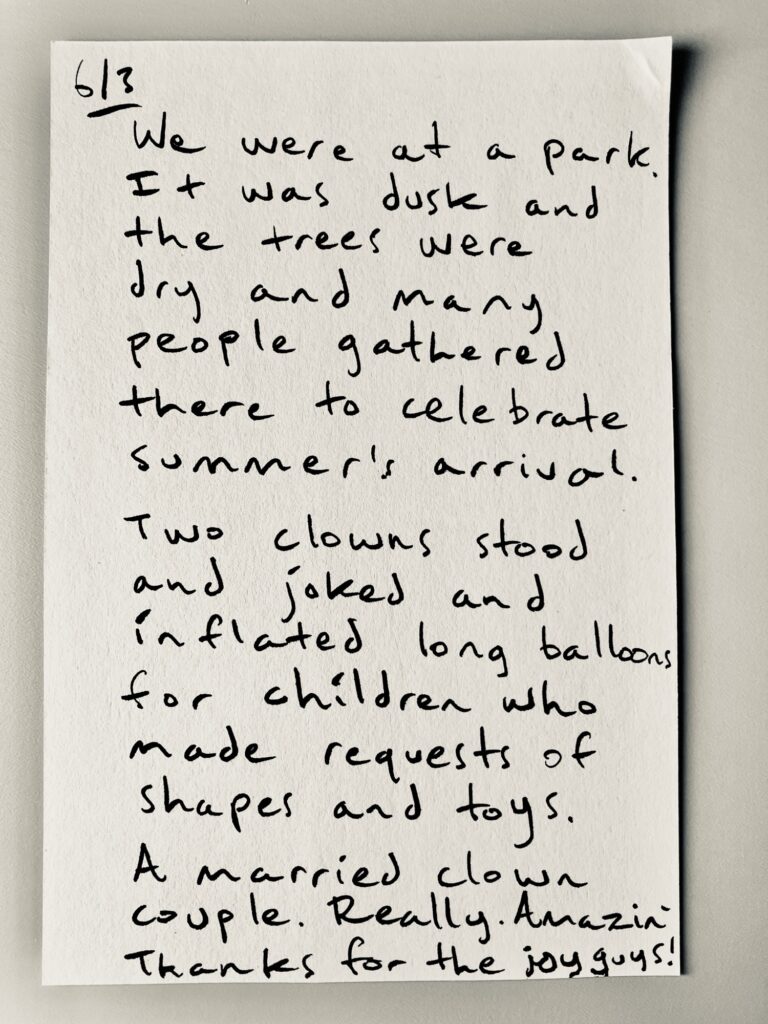 6/3
We were at a park.
It was dusk and
the trees were
dry and many
people gathered
there to celebrate
summer's arrival.
Two clowns stood
and joked and
inflated long balloons
for children who
made requests of
shapes and toys.
A married clown
couple. Really. Amazin'
Thanks for the joy guys!